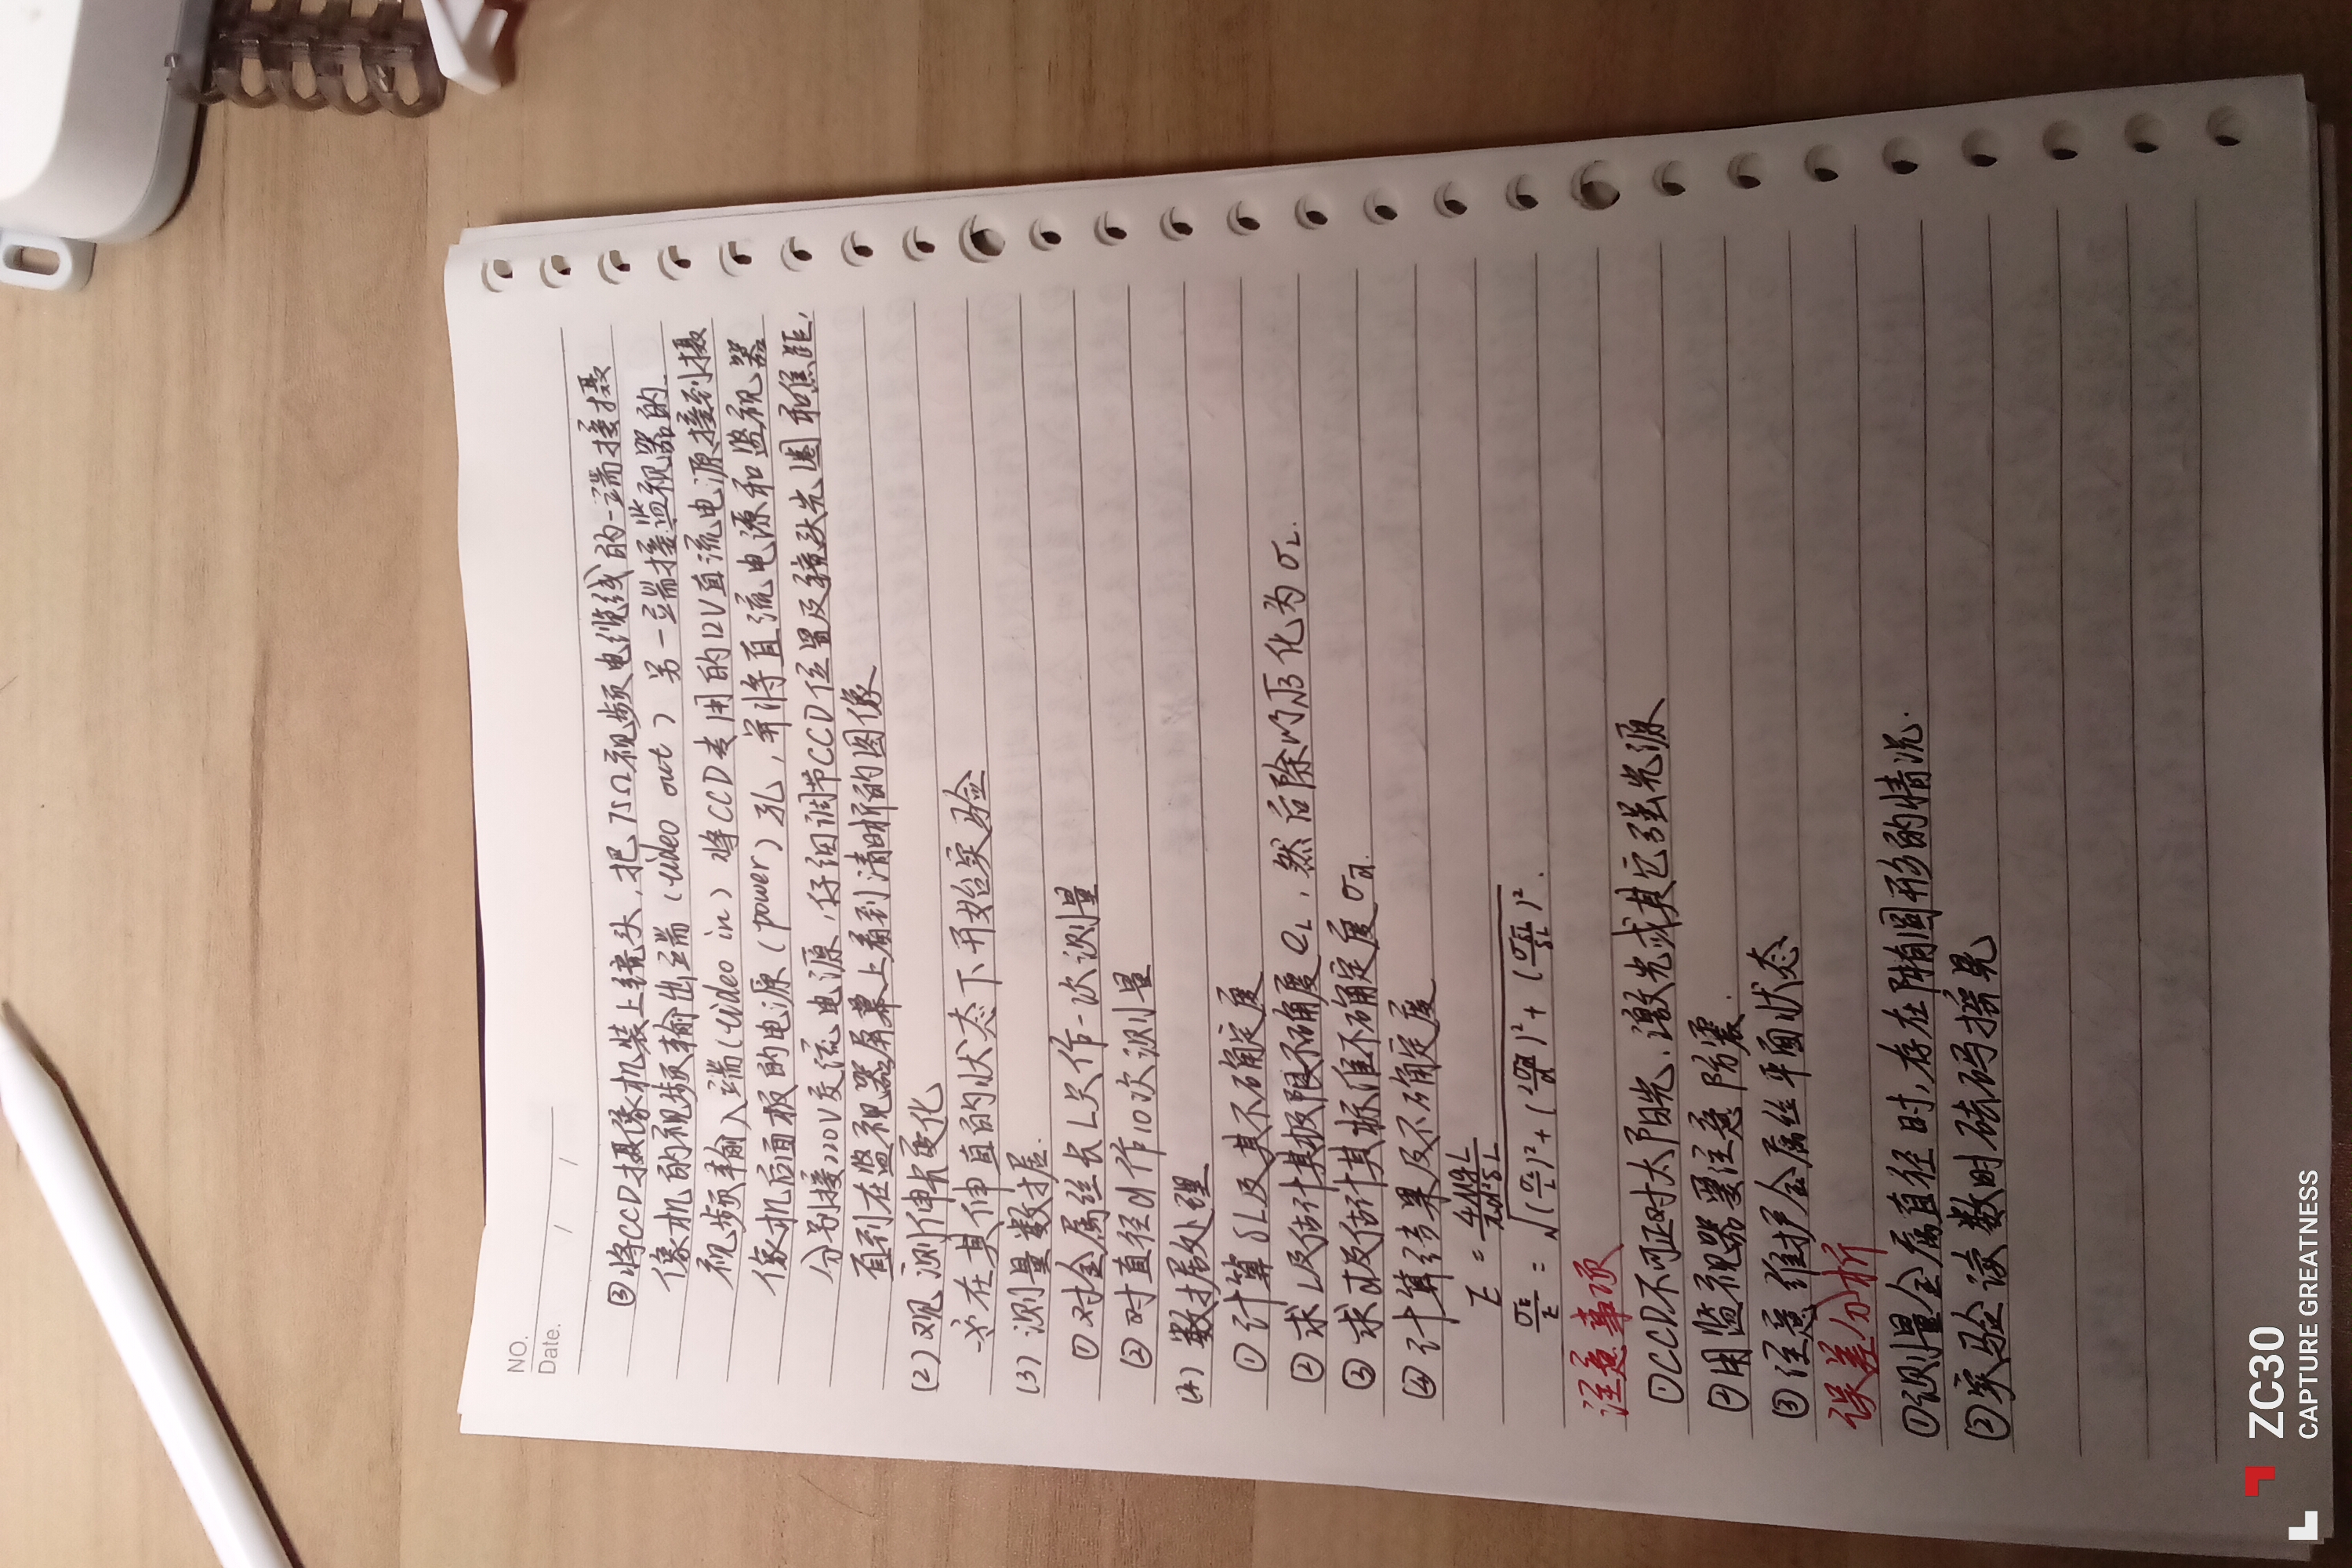 NO.
Date. / /
③将CCD摄像机装上镜头,把75Ω视频电缆线的一端接摄
像机的视频输出端(video out)另一端接监视器的
视频输入端(video in)将CCD专用的12V直流电源接到摄
像机后面板的电源(power)孔,并将直流电源和监视器
分别接220V交流电源,仔细调节CCD位置及镜头光圈和焦距,
直到在监视器屏幕上看到清晰的图像
(2)观测伸长变化
※在其伸直的状态下开始实验
(3)测量数据.
①对金属丝长L只作一次测量
②对直径d作10次测量
(4)数据处理
①计算δL及其不确定度
②求L及估计其极限不确度eL,然后除以√3化为σL.
③求d及估计其标准不确定度σd.
④计算结果及不确定度
E = 4MgL/πd²δL
σE/E = √(σL/L)² + (2σd/d)² + (σδL/δL)² .
注意事项
①CCD不可正对太阳光、激光或其它强光源
②用监视器要注意防震.
③注意维护金属丝平面状态
误差分析
①测量金属直径时,存在椭圆形的情况.
②实验读数时砝码摇晃
ZC30
CAPTURE GREATNESS